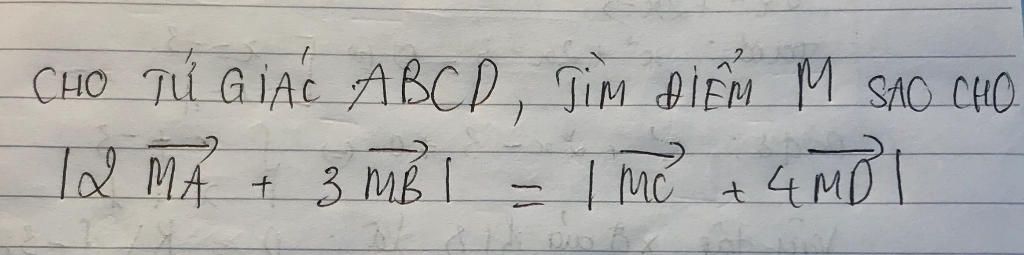 CHO TỨ GIÁC ABCD, TÌM ĐIỂM M SAO CHO
|2\overrightarrow{MA} + 3\overrightarrow{MB}| = |\overrightarrow{MC} + 4\overrightarrow{MD}|